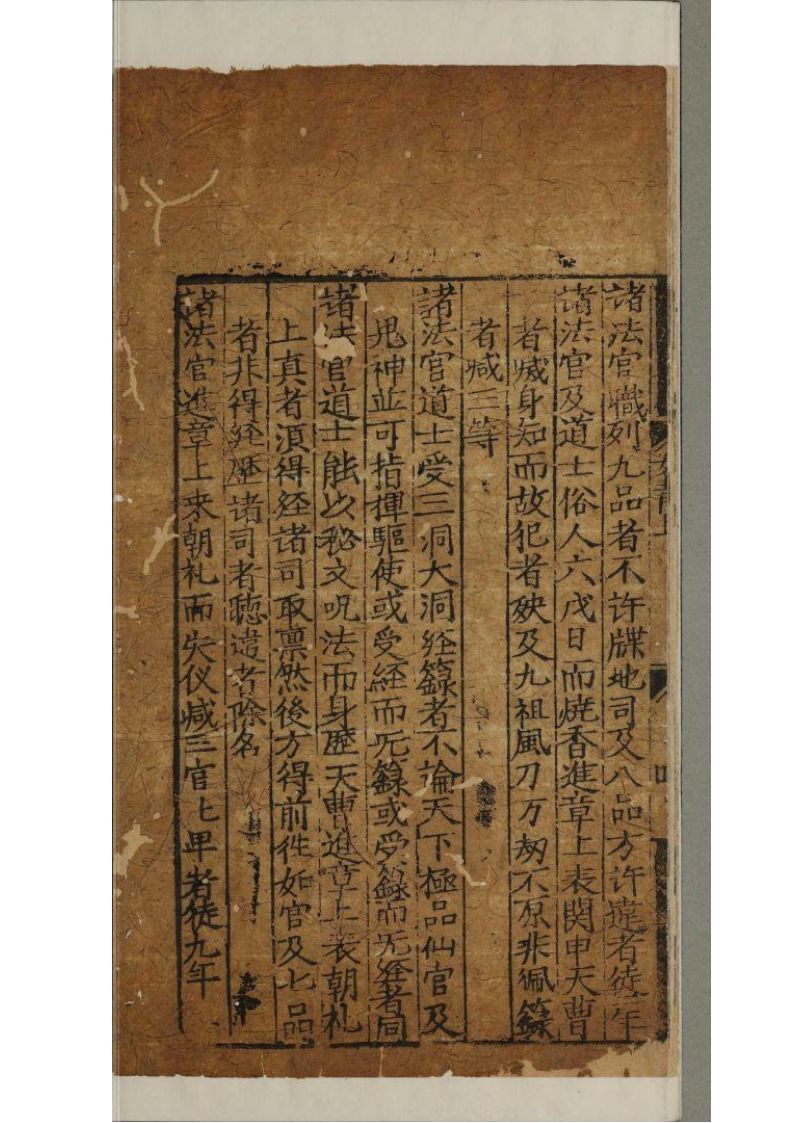 諸法官職列九品者不许牒地司及八品方许違者徒年
諸法官及道士俗人六戊日而燒香進章上表関申天曹
者滅身知而故犯者殃及九祖風刀万刼不原非佩籙
者减三等
諸法官道士受三洞大洞经籙者不論天下極品仙官及
鬼神並可指揮驅使或受経而旡籙或受籙而旡经者同
諸法官道士能以秘文呪法而身歴天曹進章上表朝礼
上真者湏得经諸司取禀然後方得前徃如官及七品
者非得经歴諸司者聴遣者除名
諸法官進章上表朝礼而失仪减三官七甲者徒九年